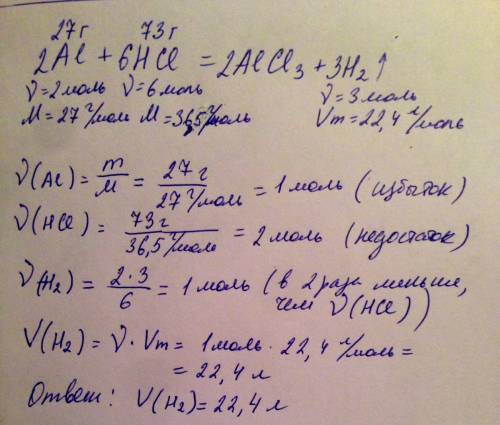 27г 73г
2Al + 6HCl = 2AlCl₃ + 3H₂↑
ν=2моль ν=6моль ν=3моль
M=27 г/моль M=36,5г/моль Vm=22,4 л/моль
ν(Al) = m/M = 27 г/27 г/моль = 1 моль (избыток)
ν(HCl) = 73г/36,5 г/моль = 2 моль (недостаток)
ν(H₂) = 2·3/6 = 1 моль (в 2 раза меньше,
чем ν(HCl))
V(H₂) = ν · Vm = 1моль · 22,4 л/моль =
= 22,4 л
Ответ: V(H₂) = 22,4 л